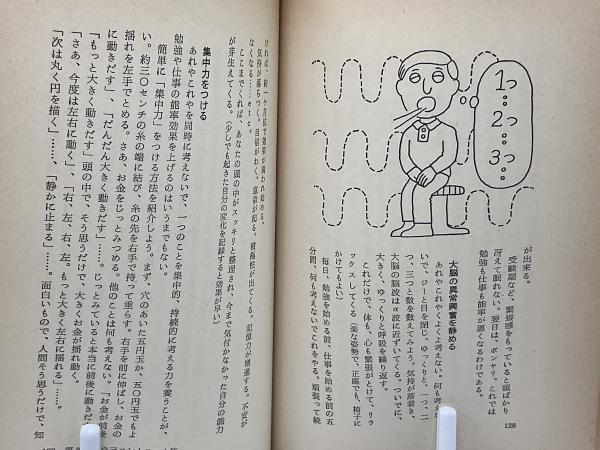 が出来る。
受験期など、緊張感をもっていると頭ばかり
冴えて眠れない。翌日は、ボンヤリ。これでは
勉強も仕事も能率が悪くなるわけである。
大脳の異常興奮を静める
あれやこれやくよくよ考えない。何も考えな
いで、ジーと目を閉じ、ゆっくりと、一つ、二
つ、三つと数を数えてみよう。気持が落着き、
大脳の脳波はα波に近ずいてくる。ついでに、
大きく、ゆっくりと呼吸を繰り返す。
これだけで、体も、心も緊張がとけて、リラ
ックスしてくる（楽な姿勢で、正座でも、椅子に
かけてもよい）
毎日、勉強を始める前、仕事を始める前の五
分間、何も考えないでこれをやる。頑張って続
1つ…
2つ…
3つ…
128
ければ、約一ケ月位で効果が現われ始める。
気持が落ちつく。自信がわく。意欲が起る。積極性が出てくる。記憶力が増進する。不安が
なくなる……etc。
ここまでくれば、あなたの頭の中がスッキリと整理され、今まで気付かなかった自分の能力
が芽生えてくる。（少しでも起きた自分の変化を記録すると効果が早い）
集中力をつける
あれやこれやを同時に考えないで、一つのことを集中的、持続的に考える力を養うことが、
勉強や仕事の能率効果を上げるのはいうまでもない。
簡単に「集中力」をつける方法を紹介しよう。まず、穴のあいた五円玉か、五〇円玉でもよ
い。約三〇センチの糸の端に結び、糸の先を右手で持って垂らす。右手を前に伸ばし、お金の
揺れを左手でとめる。さあ、お金をじっとみつめる。他のことは何も考えない。「お金が前後
に動きだす」、「だんだん大きく動きだす」……。じっとみていると本当に前後に動きだ
「もっと大きく動きだす」頭の中で、そう思うだけで、大きくお金が揺れ動く。
「さあ、今度は左右に動く」、「右、左、右、左。もっと大きく左右に揺れる」……。
「次は丸く円を描く」……、「静かに止まる」……。面白いもので、人間そう思うだけで、知